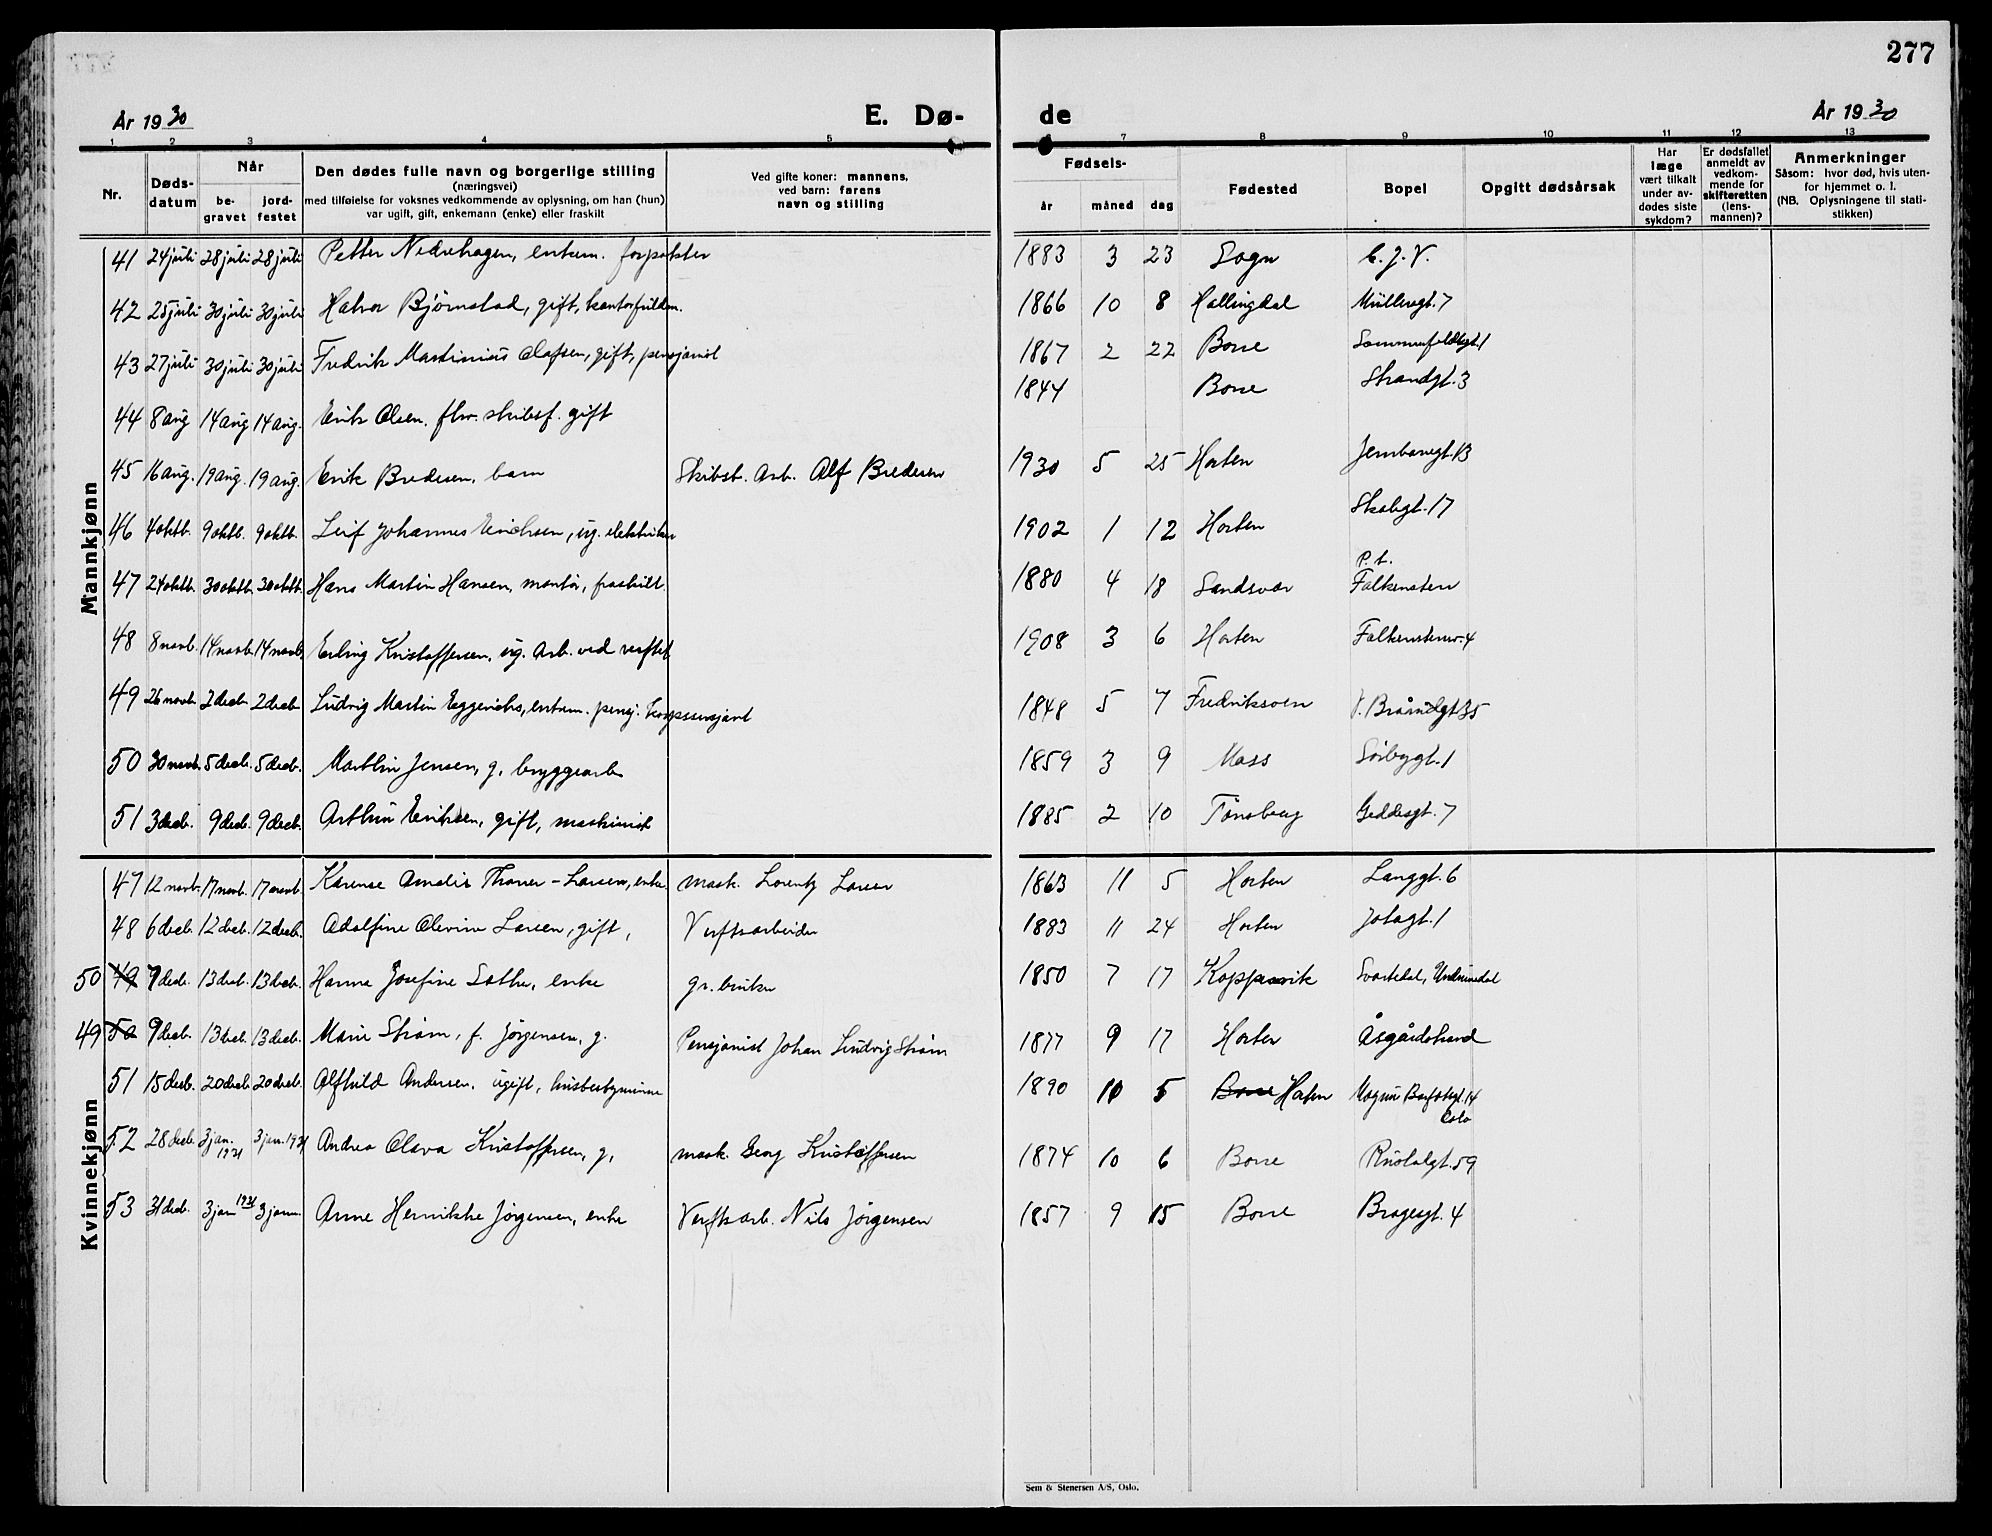 277
År 1930 E. Dø- de År 1930
1 2 3 4 5 6 7 8 9 10 11 12 13
Nr. Døds-datum Når be-gravet jord-festet Den dødes fulle navn og borgerlige stilling (næringsvei) med tilføielse for voksnes vedkommende av oplysning, om han (hun) var ugift, gift, enkemann (enke) eller fraskilt Ved gifte koner: mannens, ved barn: farens navn og stilling Fødsels- år måned dag Fødested Bopel Opgitt dødsårsak Har læge vært tilkalt under av-dødes siste sykdom? Er dødsfallet anmeldt av vedkom-mende for skifteretten (lens-mannen)? Anmerkninger Såsom: hvor død, hvis uten-for hjemmet o. l. (NB. Oplysningene til stati-stikken)
Mannkjønn
41 24 juli 28 juli 28 juli Petter Nedrehagen, enkem. forpakter 1883 3 23 Sogn C. J. V.
42 25 juli 30 juli 30 juli Halvor Bjørnstad, gift, kontorfuldm. 1866 10 8 Hallingdal Müllersgt. 7
43 27 juli 30 juli 30 juli Fredrik Martinius Olafsen, gift, pensjonist 1867 2 22 Borre Sommerfeldtsgt. 1
44 8 aug 14 aug 14 aug. Erik Olsen. fhv. skibsf. gift 1844 Borre Strandgt. 3
45 16 aug. 19 aug. 19 aug. Erik Bredesen, barn Skibsb. Arb. Alf Bredesen 1930 5 25 Horten Jernbanegt. 13
46 4 oktb. 9 oktb. 9 oktb. Leif Johannes Erichsen, ug. elektriker 1902 1 12 Horten Skolegt. 17
47 24 oktb. 30 oktb. 30 oktb. Hans Martin Hansen, montør, fraskilt. 1880 4 18 Sandsvær P. t. Falkensten
48 8 novb. 14 novb. 14 novb. Erling Kristoffersen, ug. Arb. ved verftet 1908 3 6 Horten Falkenstenv. 4
49 26 novb. 2 decb. 2 decb. Ludvig Martin Eggerichs, enkem. pensj. korpssersjant 1848 5 7 Fredriksvern V. Braarudgt 35
50 30 novb. 5 decb. 5 decb. Marthin Jensen, g. bryggearb. 1859 3 9 Moss Sørbygt. 1
51 3 decb. 9 decb. 9 decb. Arthur Eriksen, gift, maskinist 1885 2 10 Tønsberg Geddesgt. 7
Kvinnekjønn
47 12 novb. 17 novb. 17 novb. Karense Amalie Thoner-Larsen, enke mask. Lorentz Larsen 1863 11 5 Horten Langgt. 6
48 6 decb. 12 decb. 12 decb. Adolfine Olevine Larsen, gift, Verftsarbeider 1883 11 24 Horten Jotagt. 1
50 49 7 decb. 13 decb. 13 decb. Hanna Josefine Sæther, enke gr. bruker 1850 7 17 Koppervik Svartedal, Undrumsdal
49 50 9 decb. 13 decb. 13 decb. Marie Strøm, f. Jørgensen, g. Pensjonist Johan Ludvig Strøm 1877 9 17 Horten Åsgårdstrand
51 15 decb. 20 decb. 20 decb. Alfhild Andersen, ugift, husbestyrerinne 1890 10 5 Borre Horten Magnus Barfotsgt. 14 Oslo
52 28 decb. 3 jan. 1931 3 jan. 1931 Andrea Olava Kristoffersen, g. mask. Georg Kristoffersen 1874 10 6 Borre Rustadgt. 59
53 31 decb. 3 jan 1931 3 jan. Anne Henrikke Jørgensen, enke Verftsarb. Nils Jørgensen 1857 9 15 Borre Bragesgt. 4
Sem & Stenersen A/S, Oslo.